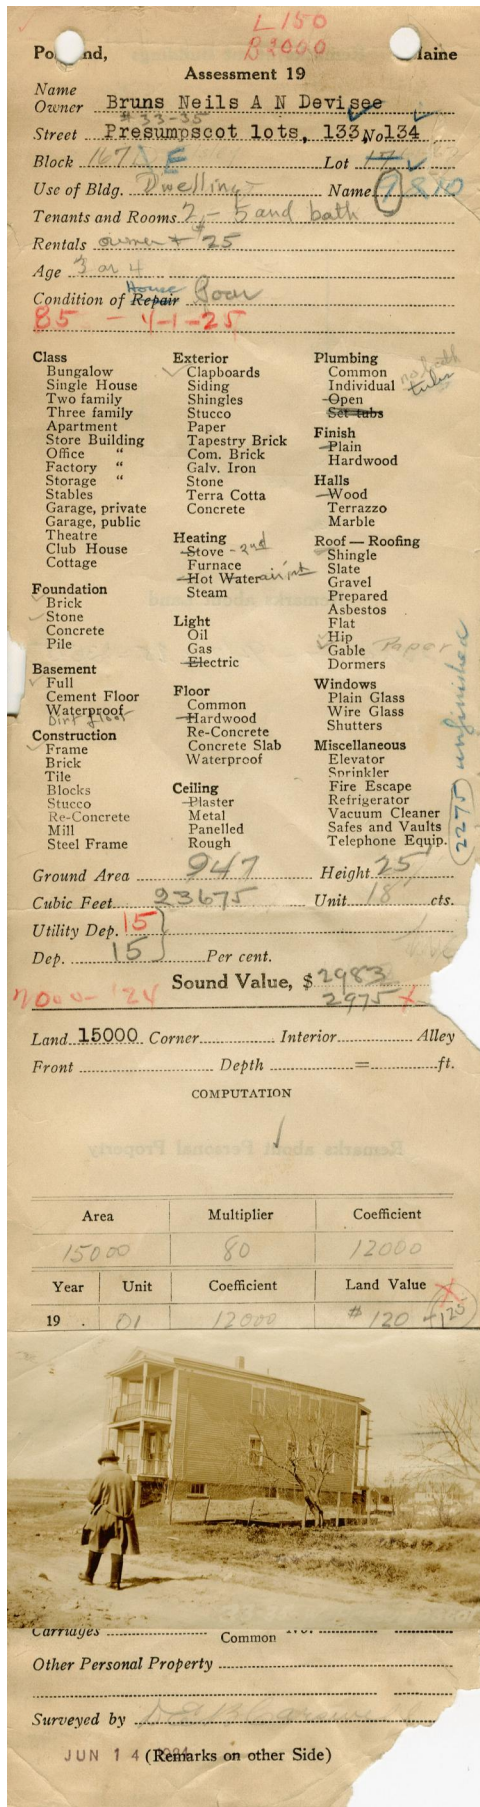 L 150
B 2000
Po nd, Maine
Assessment 19
Name
Owner Bruns Neils A N Devisee
# 33-35
Street Presumpscot lots, 133, No 134
Block 167 E Lot 17
Use of Bldg. Dwelling Name 9 8 10
Tenants and Rooms 2 - 5 and bath
Rentals owner + $25
Age 3 or 4
House
Condition of Repair Poor
B5 - 4-1-25
Class
Bungalow
Single House
Two family
Three family
Apartment
Store Building
Office "
Factory "
Storage "
Stables
Garage, private
Garage, public
Theatre
Club House
Cottage
Foundation
Brick
Stone
Concrete
Pile
Basement
Full
Cement Floor
Waterproof
Dirt floor
Construction
Frame
Brick
Tile
Blocks
Stucco
Re-Concrete
Mill
Steel Frame
Exterior
Clapboards
Siding
Shingles
Stucco
Paper
Tapestry Brick
Com. Brick
Galv. Iron
Stone
Terra Cotta
Concrete
Heating
Stove - 2nd
Furnace
Hot Water
Steam
Light
Oil
Gas
Electric
Floor
Common
Hardwood
Re-Concrete
Concrete Slab
Waterproof
Ceiling
Plaster
Metal
Panelled
Rough
Plumbing
Common
Individual no bath
Open tubs
Set tubs
Finish
Plain
Hardwood
Halls
Wood
Terrazzo
Marble
Roof — Roofing
Shingle
Slate
Gravel
Prepared
Asbestos
Flat
Hip
Gable Paper
Dormers
Windows
Plain Glass
Wire Glass
Shutters
Miscellaneous
Elevator
Sprinkler
Fire Escape
Refrigerator
Vacuum Cleaner
Safes and Vaults
Telephone Equip.
2275 unfinished
Ground Area 947 Height 25
Cubic Feet 23675 Unit 18 cts.
Utility Dep. 15
Dep. 15 Per cent.
Sound Value, $ 2983
2000 - '24 2975 X
Land 15000 Corner Interior Alley
Front Depth = ft.
COMPUTATION
Area Multiplier Coefficient
15000 80 12000
Year Unit Coefficient Land Value X
19 . 01 12000 $ 120 - 125
Carriages No.
Common
Other Personal Property
Surveyed by
JUN 14 (Remarks on other Side)